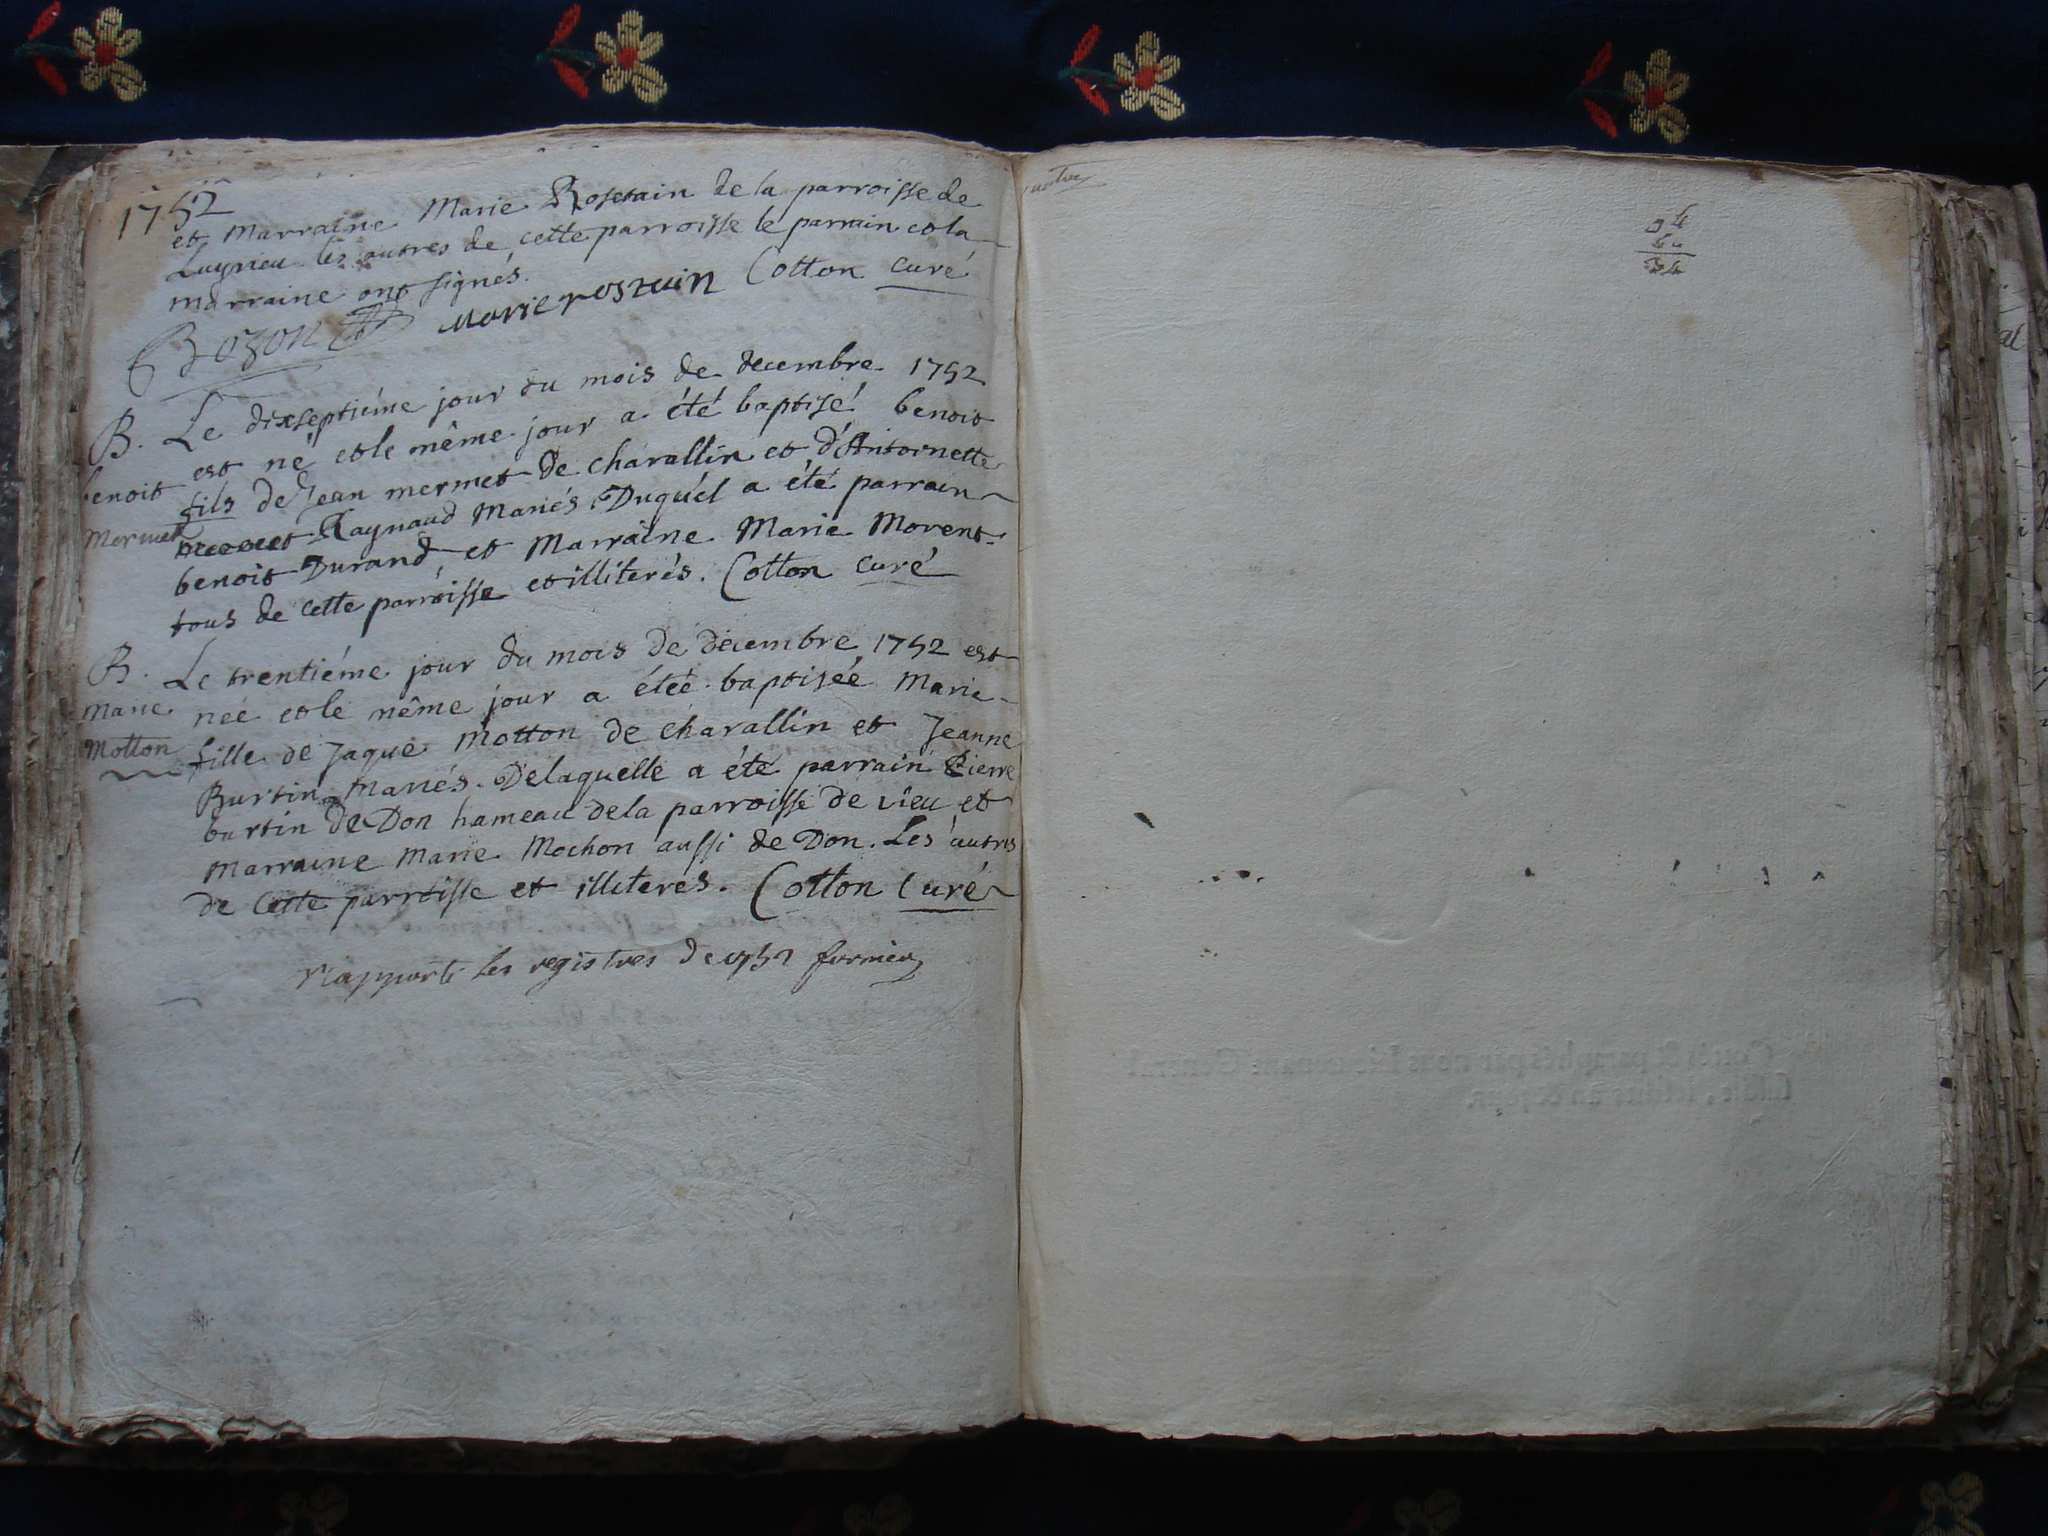 1752
et Marraine Marie Rostain de la parroisse de
Luyrieu les autres de cette parroisse le parrain et la
marraine ont signés.
Bozon Marie rostain Cotton curé
B. Le dixseptiéme jour du mois de decembre 1752
benoit est né et le même jour a été baptisé benoit
Mermet fils de Jean mermet de charallin et d'Antoinette
Raynaud Mariés. Duquel a été parrain
benoit Durand et Marraine Marie Morent
tous de cette parroisse et illiterés. Cotton curé
B. Le trentiéme jour du mois de decembre 1752 est
Marie née et le même jour a étée baptisée Marie
Motton fille de Jaque Motton de charallin et Jeanne
Burtin Mariés. De laquelle a été parrain Pierre
burtin de Don hameau de la parroisse de vieu et
Marraine Marie Mochon aussi de Don. Les autres
de cette parroisse et illiterés. Cotton Curé
rapporté les registres de 1752